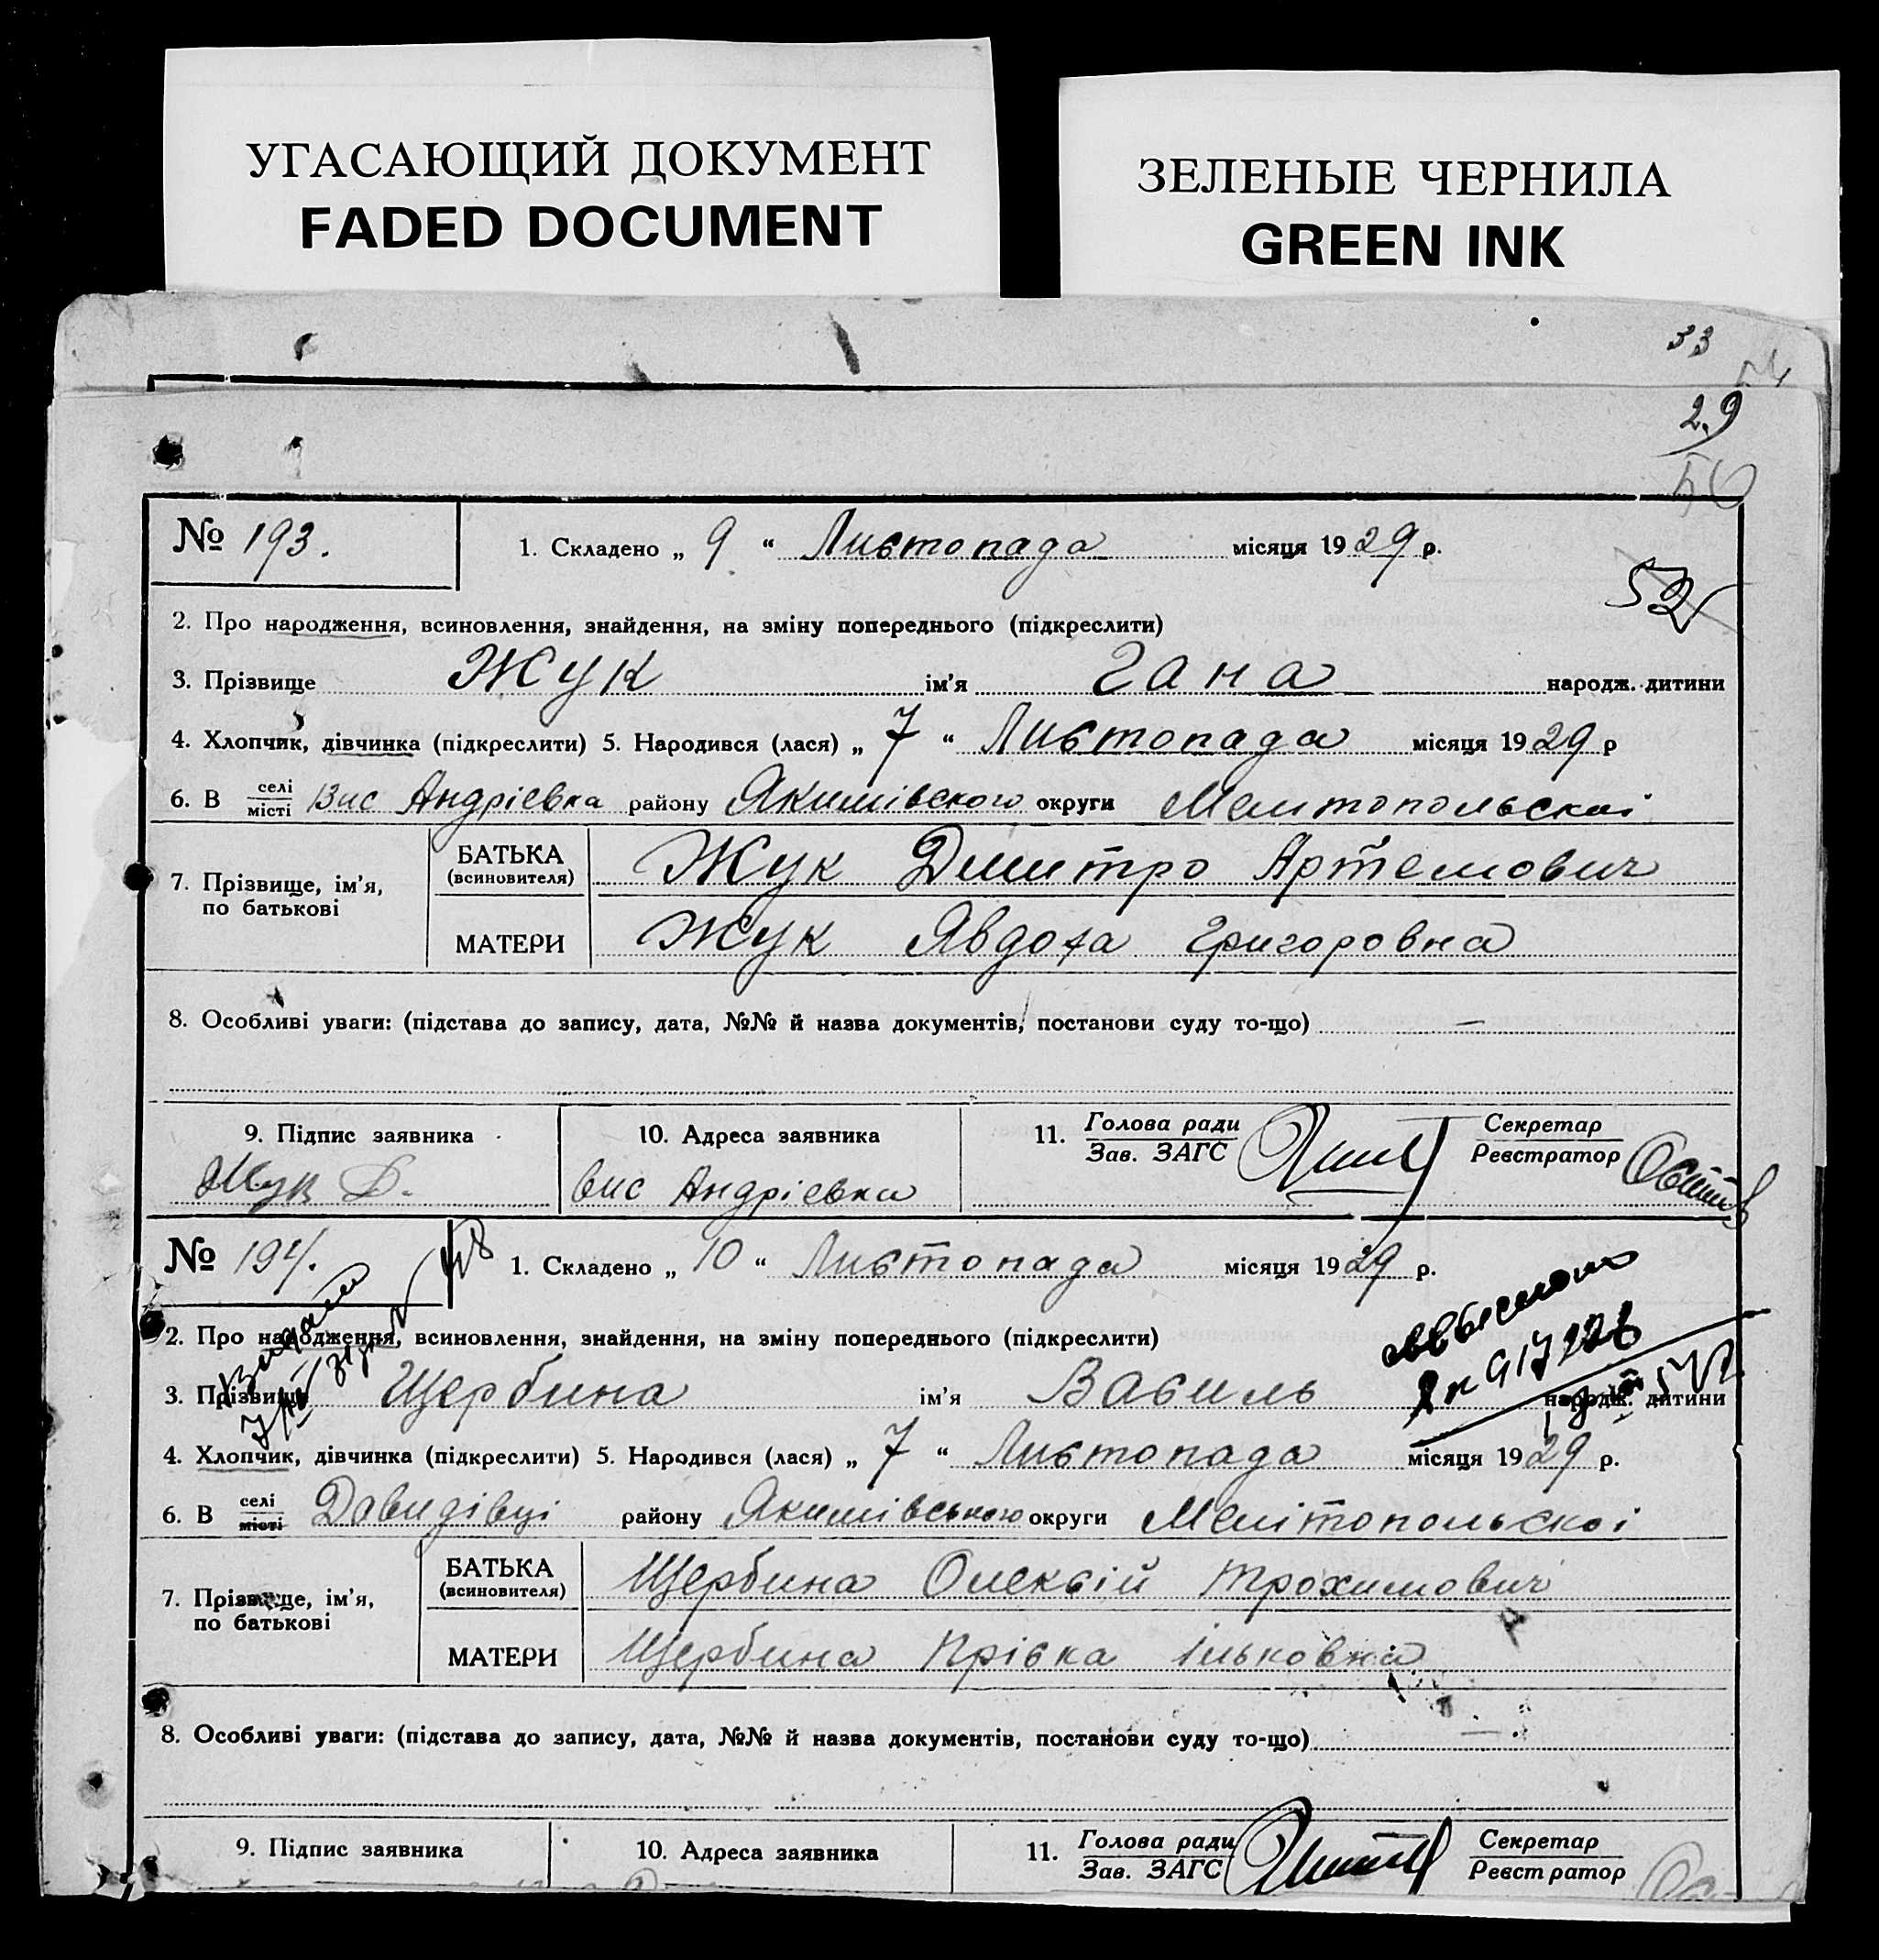 УГАСАЮЩИЙ ДОКУМЕНТ
FADED DOCUMENT
ЗЕЛЕНЫЕ ЧЕРНИЛА
GREEN INK
33
29
56
№ 193. 1. Складено „ 9 “ Листопада місяця 1929 р.
52
2. Про народження, всиновлення, знайдення, на зміну попереднього (підкреслити)
3. Прізвище Жук ім’я Гана народж. дитини
4. Хлопчик, дівчинка (підкреслити) 5. Народився (лася) „ 7 “ Листопада місяця 1929 р
6. В селі місті Вис Андрієвка району Якимівского округи Мелитопольскої
7. Прізвище, ім’я, по батькові
БАТЬКА (всиновителя) Жук Дмитро Артемович
МАТЕРИ Жук Явдоха Григоровна
8. Особливі уваги: (підстава до запису, дата, №№ й назва документів, постанови суду то-що) —
9. Підпис заявника 10. Адреса заявника 11. Голова ради Зав. ЗАГС Секретар Реєстратор
Жук Д. Вис Андрієвка
№ 194. 1. Складено „ 10 “ Листопада місяця 1929 р.
2. Про народження, всиновлення, знайдення, на зміну попереднього (підкреслити)
3. Прізвище Щербина ім’я Василь народж. дитини
4. Хлопчик, дівчинка (підкреслити) 5. Народився (лася) „ 7 “ Листопада місяця 1929 р.
6. В селі місті Давидівці району Якимівського округи Мелітопольскої
7. Прізвище, ім’я, по батькові
БАТЬКА (всиновителя) Щербина Олексій Трохимович
МАТЕРИ Щербина Пріська Ільковна
8. Особливі уваги: (підстава до запису, дата, №№ й назва документів, постанови суду то-що) —
9. Підпис заявника 10. Адреса заявника 11. Голова ради Зав. ЗАГС Секретар Реєстратор